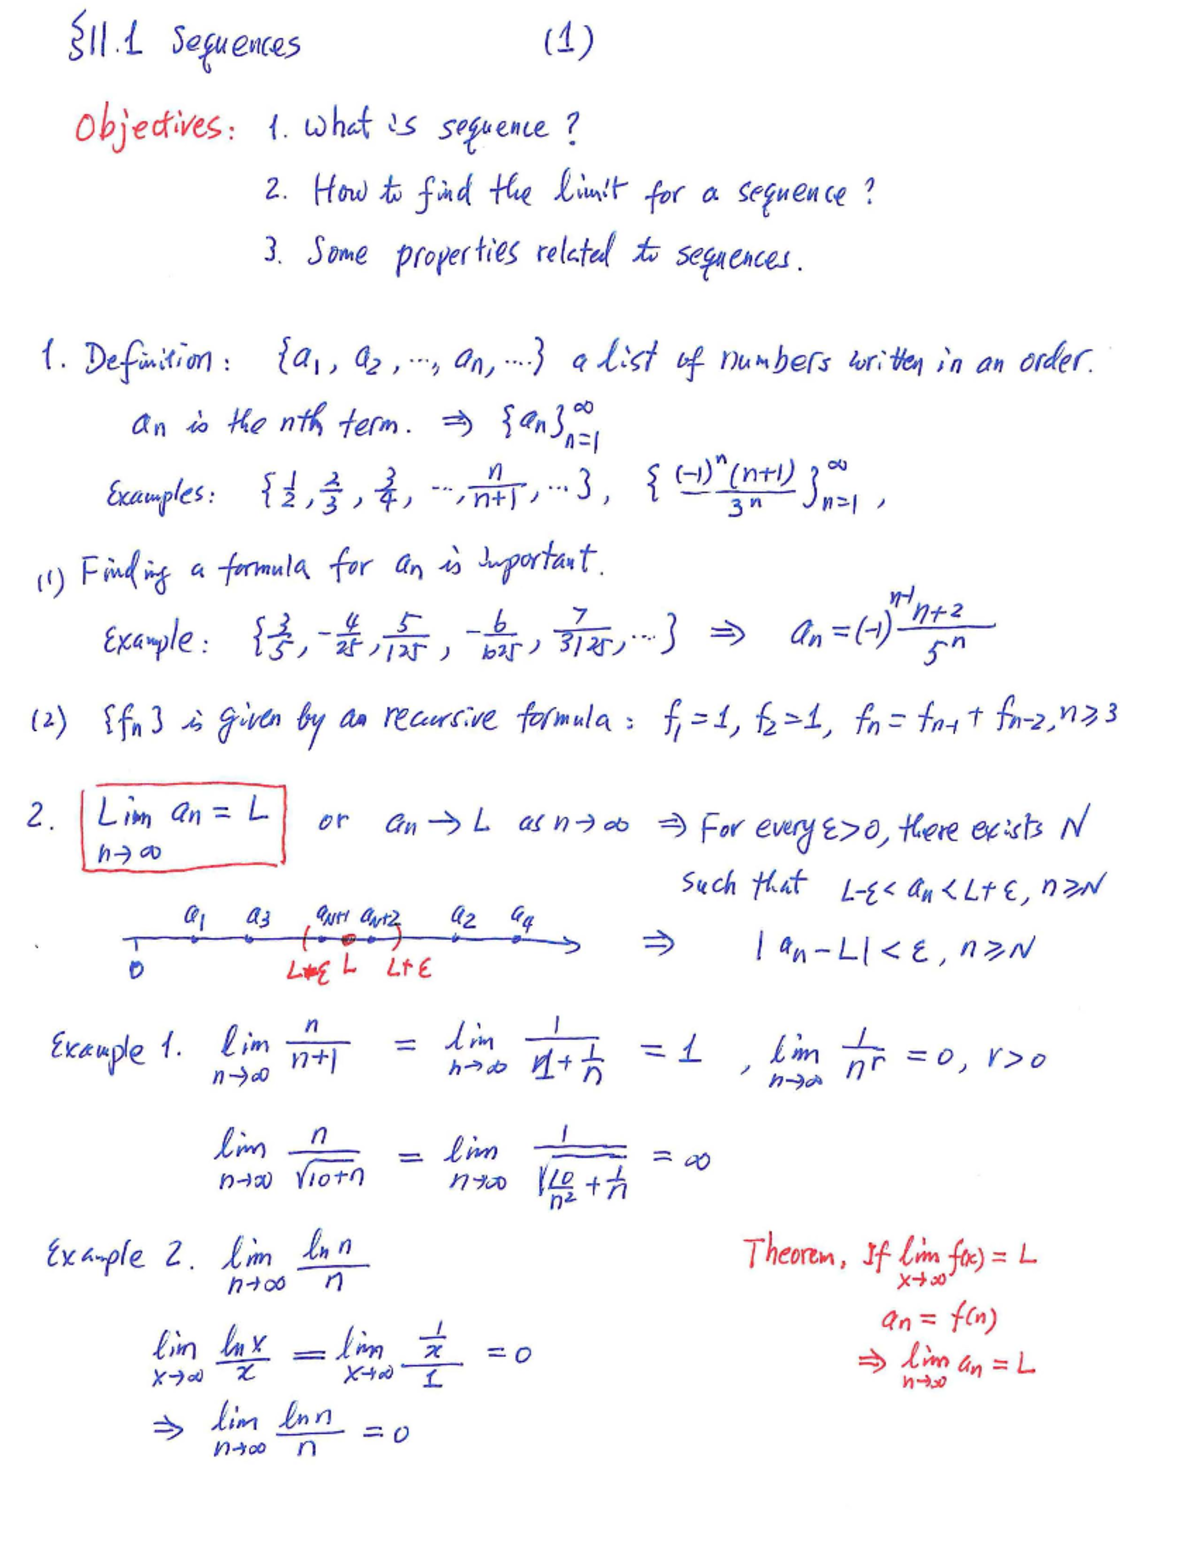 §11.1 Sequences (1)
Objectives: 1. What is sequence?
2. How to find the limit for a sequence?
3. Some properties related to sequences.
1. Definition: {a₁, a₂, ..., aₙ, ....} a list of numbers written in an order.
aₙ is the nth term. ⇒ {aₙ}ₙ₌₁^∞
Examples: {1/2, 2/3, 3/4, ..., n/(n+1), ...}, {(-1)ⁿ(n+1)/3ⁿ}ₙ₌₁^∞,
(1) Finding a formula for aₙ is important.
Example: {3/5, -4/25, 5/125, -6/625, 7/3125, ...} ⇒ aₙ = (-1)ⁿ⁻¹ (n+2)/5ⁿ
(2) {fₙ} is given by an recursive formula: f₁=1, f₂=1, fₙ = fₙ₋₁ + fₙ₋₂, n≥3
2. Lim n→∞ aₙ = L or aₙ → L as n→∞ ⇒ For every ε>0, there exists N
such that L-ε < aₙ < L+ε, n≥N
a₁ a₃ a_{N+1} a_{N+2} a₂ a₄
0 L-ε L L+ε
⇒ |aₙ-L| < ε, n≥N
Example 1. lim n→∞ n/(n+1) = lim n→∞ 1/(1+1/n) = 1, lim n→∞ 1/nʳ = 0, r>0
lim n→∞ n/√(10+n) = lim n→∞ 1/√(10/n² + 1/n) = ∞
Example 2. lim n→∞ ln n/n
Theorem, If lim x→∞ f(x) = L
aₙ = f(n)
⇒ lim n→∞ aₙ = L
lim x→∞ ln x/x = lim x→∞ (1/x)/1 = 0
⇒ lim n→∞ ln n/n = 0